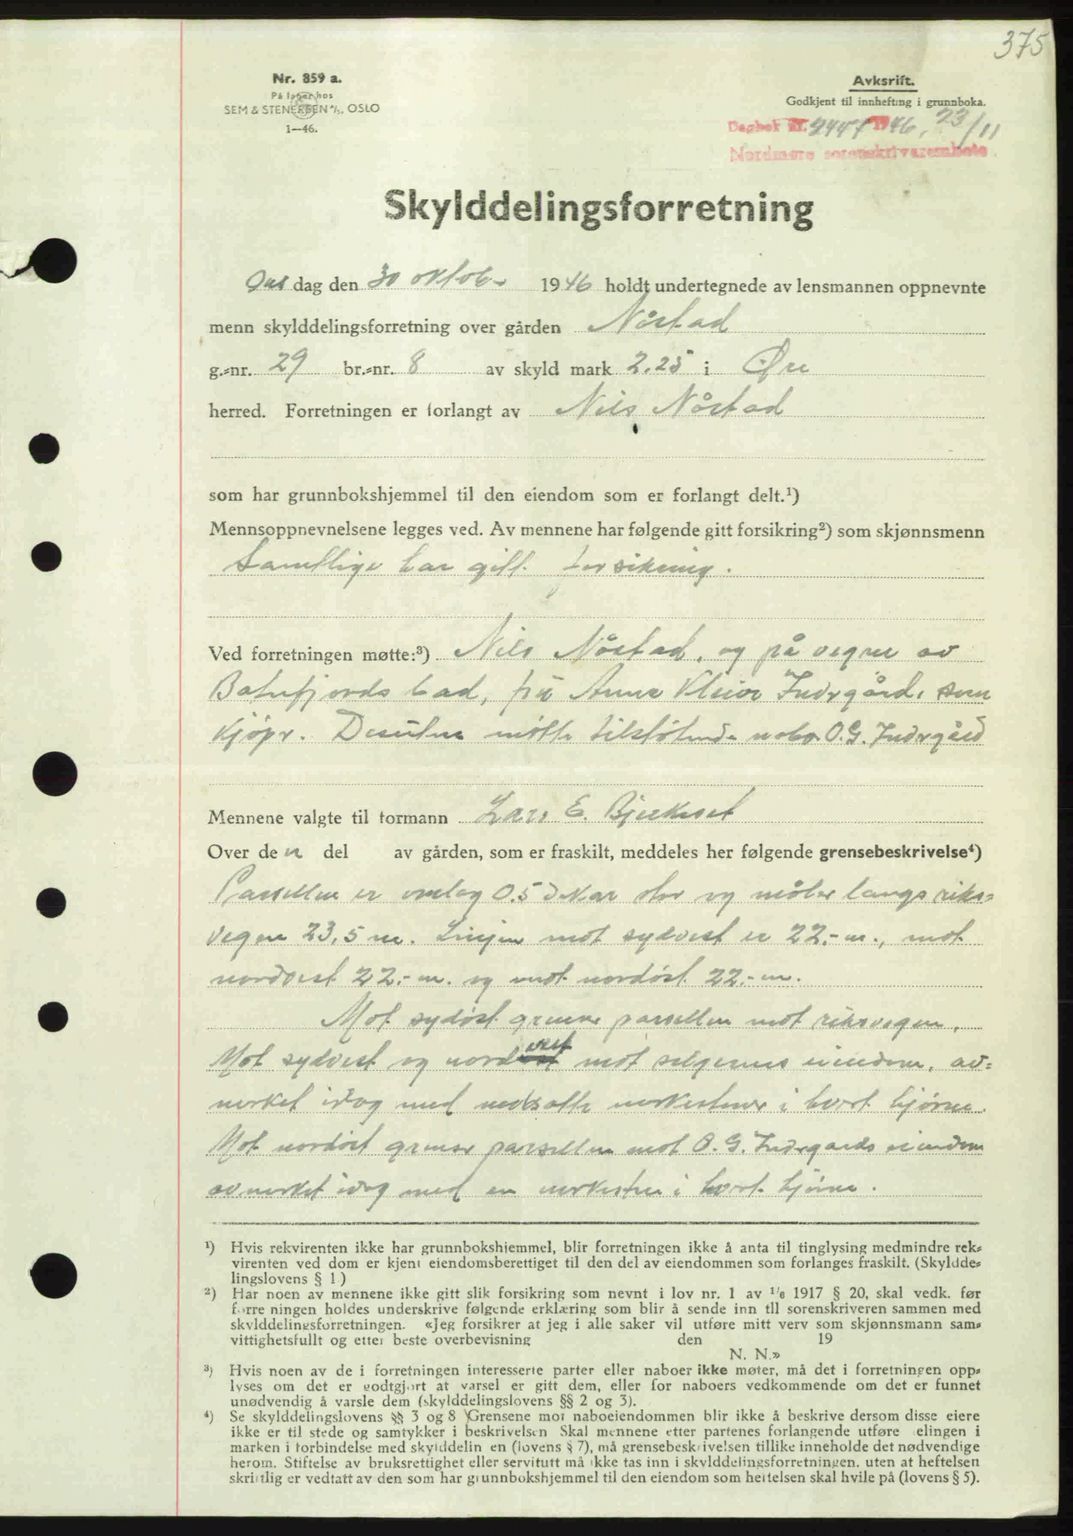 375
Nr. 859 a.
På lager hos
SEM & STENERSEN A/S, OSLO
1—46.
Avksrift.
Godkjent til innhefting i grunnboka.
Dagbok nr. 2447 1946, 23/11
Nordmøre sorenskrivarembete
Skylddelingsforretning
dag den 30 oktob. 1946 holdt undertegnede av lensmannen oppnevnte
menn skylddelingsforretning over gården Nåstad
g.-nr. 29 br.-nr. 8 av skyld mark 2.25 i Øre
herred. Forretningen er forlangt av Nils Nåstad
som har grunnbokshjemmel til den eiendom som er forlangt delt.¹)
Mennsoppnevnelsene legges ved. Av mennene har følgende gitt forsikring²) som skjønnsmenn
Samtlige har gitt forsikring.
Ved forretningen møtte:³) Nils Nåstad, og på vegne av
Batnfjords bad, frk Anna Indrgård, som
kjöpr. Desuten møtte tilstøtende nabo O.G. Indrgård
Mennene valgte til formann Lars E. Bjerkeset
Over den del av gården, som er fraskilt, meddeles her følgende grensebeskrivelse⁴)
Parsellen er omlag 0.5 dekar stor og måler langs riks-
vegen 23,5 m. Linjen mot sydvest er 22.- m., mot
nordvest 22.- m. og mot nordöst 22.- m.
Mot sydöst grenser parsellen mot riksvegen.
Mot sydvest og nordvest mot selgerens eiendom, av-
merket idag med nedsatte merkestener i hvert hjörne.
Mot nordöst grenser parsellen mot O. G. Indrgaards eiendom
avmerket idag med en merkesten i hvert hjörne.
¹) Hvis rekvirenten ikke har grunnbokshjemmel, blir forretningen ikke å anta til tinglysing medmindre rek-
virenten ved dom er kjent eiendomsberettiget til den del av eiendommen som forlanges fraskilt. (Skyldde-
lingslovens § 1)
²) Har noen av mennene ikke gitt slik forsikring som nevnt i lov nr. 1 av 1/6 1917 § 20, skal vedk. før
forretningen holdes underskrive følgende erklæring som blir å sende inn til sorenskriveren sammen med
skylddelingsforretningen. «Jeg forsikrer at jeg i alle saker vil utføre mitt verv som skjønnsmann sam-
vittighetsfullt og etter beste overbevisning den 19
N. N.»
³) Hvis noen av de i forretningen interesserte parter eller naboer ikke møter, må det i forretningen opp-
lyses om det er godtgjort at varsel er gitt dem, eller for naboers vedkommende om det er funnet
unødvendig å varsle dem (skylddelingslovens §§ 2 og 3).
⁴) Se skylddelingslovens §§ 3 og 8 Grensene mot naboeiendommen blir ikke å beskrive dersom disse eiere
ikke er til stede og samtykker i beskrivelsen Skal mennene etter partenes forlangende utføre delingen i
marken i forbindelse med skylddelingen (lovens § 7), må grensebeskrivelsen tillike inneholde det nødvendige
herom. Stiftelse av bruksrettighet eller servitutt må ikke tas inn i skylddelingsforretningen, uten at heftelsen
skriftlig er vedtatt av den som har grunnbokshjemmel til den eiendom som heftelsen skal hvile på (lovens § 5).